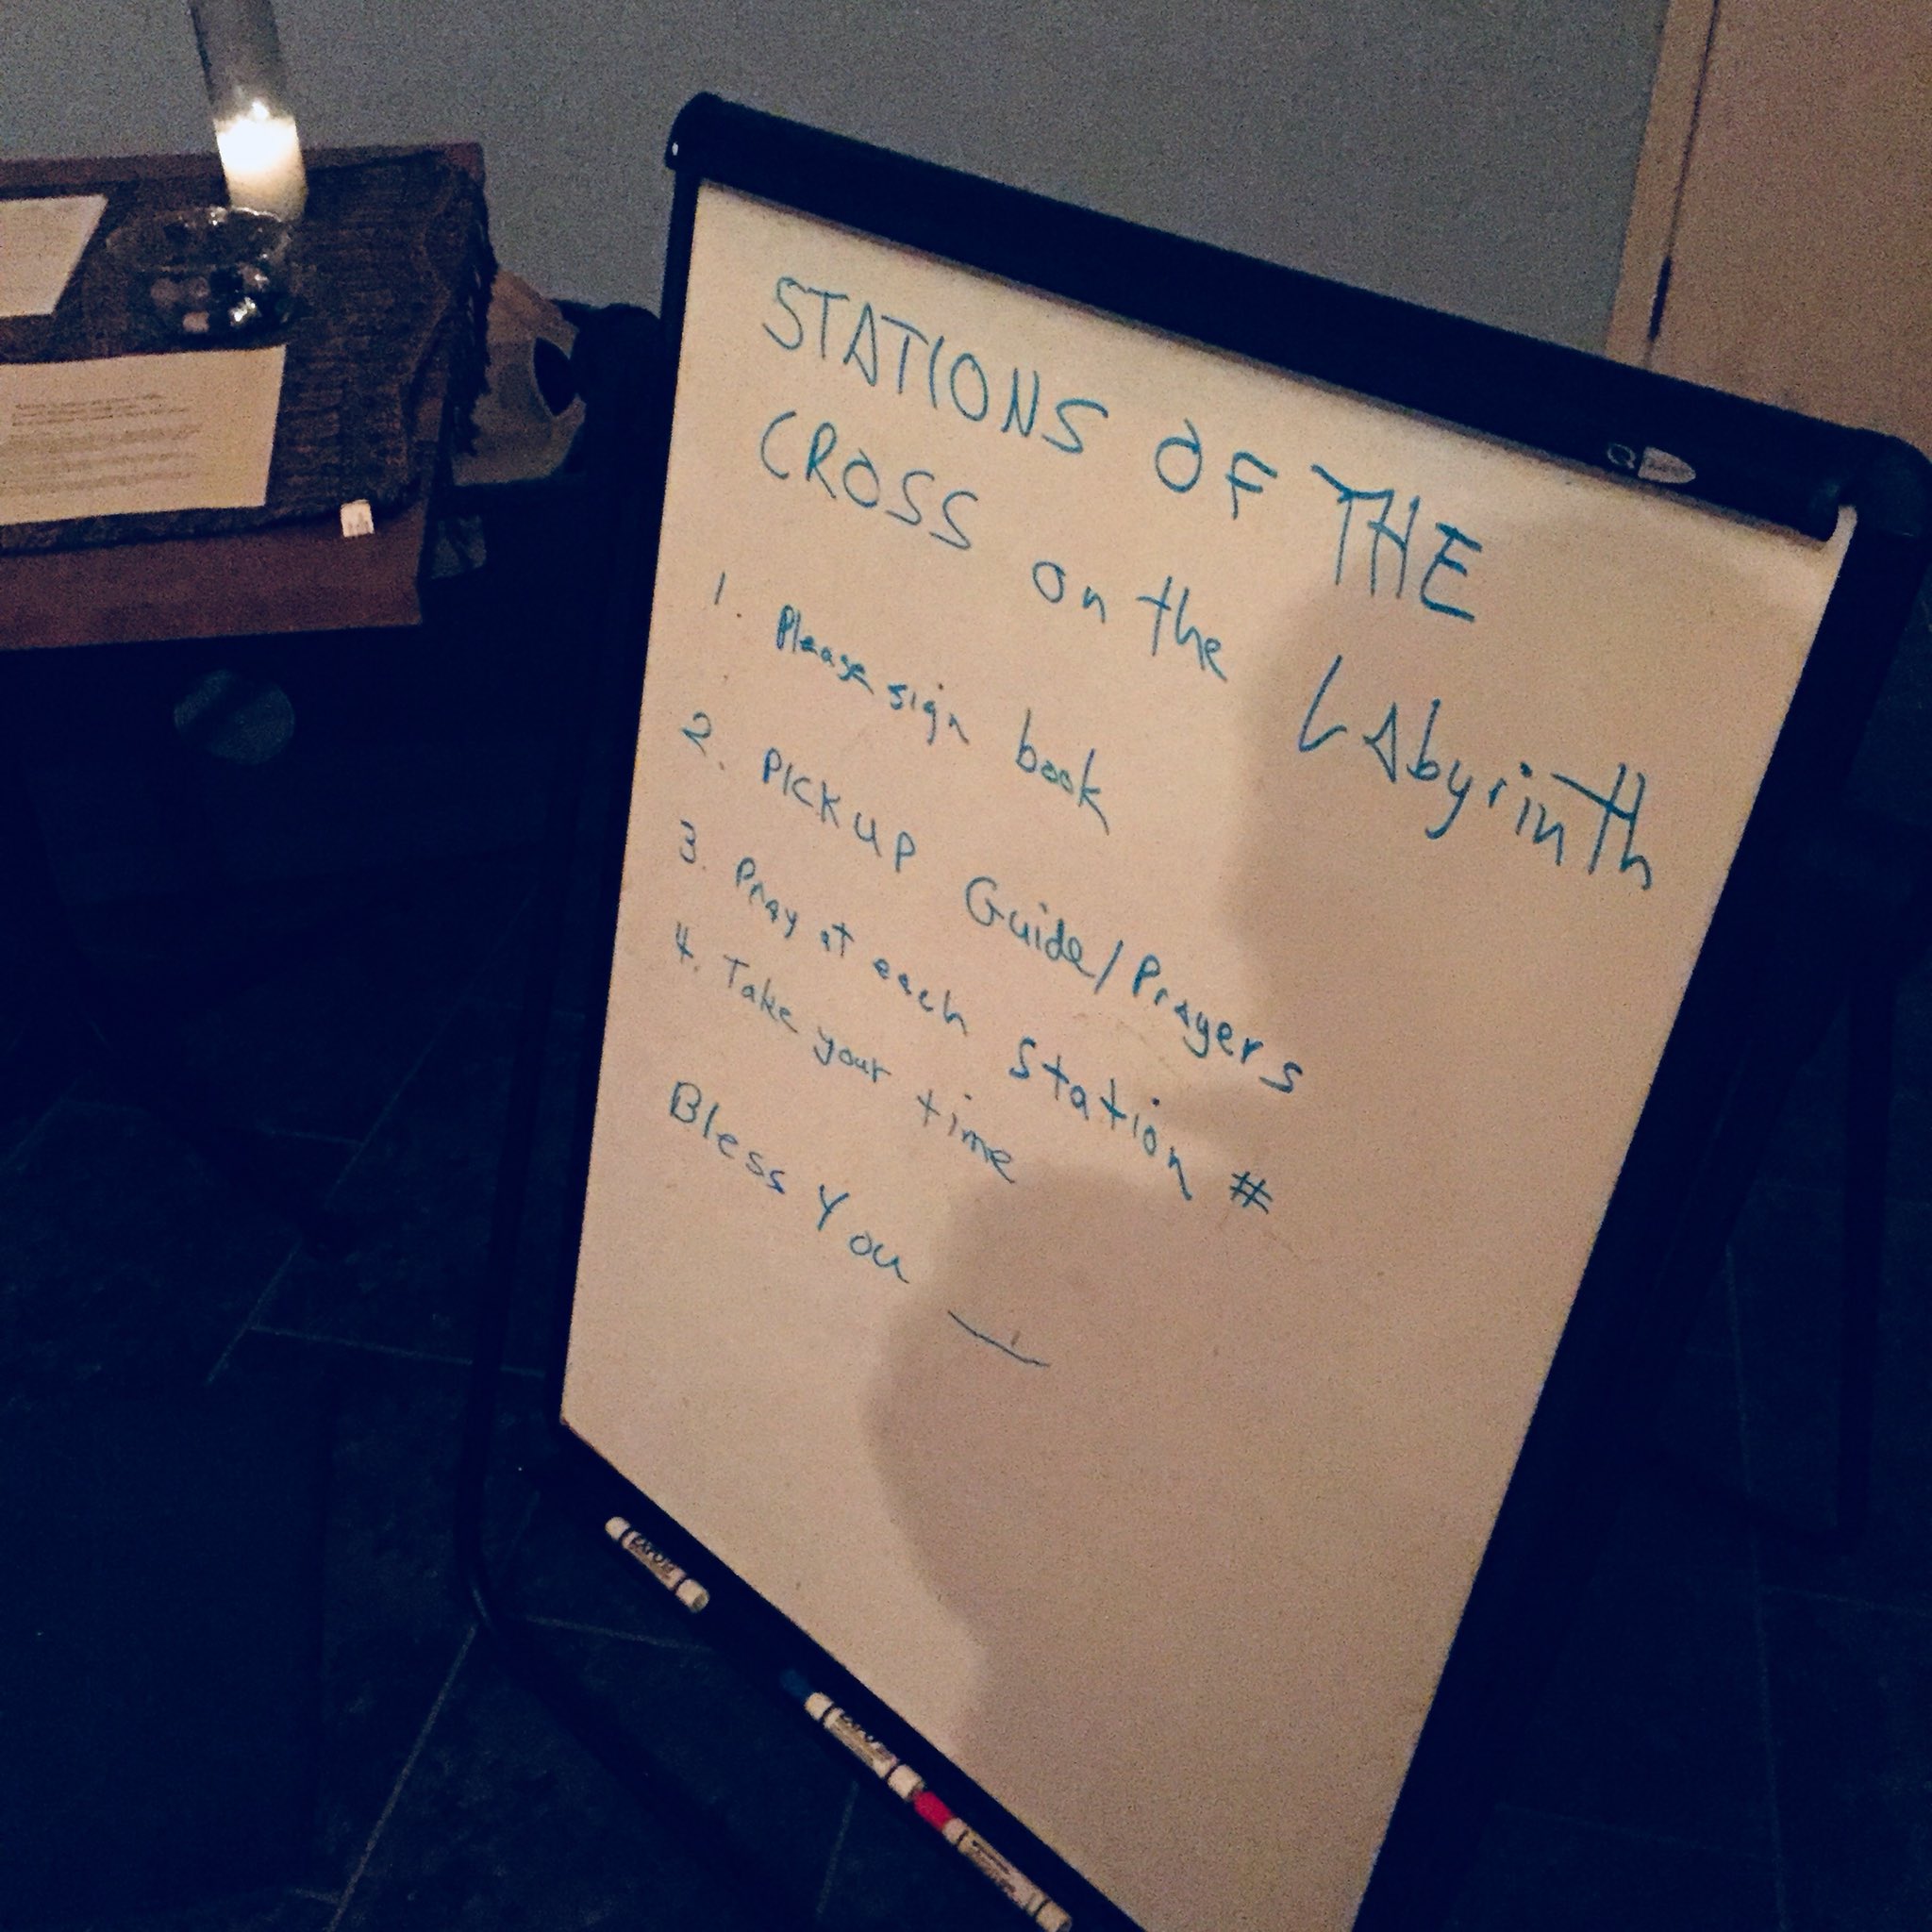 STATIONS OF THE
CROSS on the Labyrinth
1. Please sign book
2. PICKUP Guide/Prayers
3. Pray at each Station #
4. Take your time
Bless You
EXPO